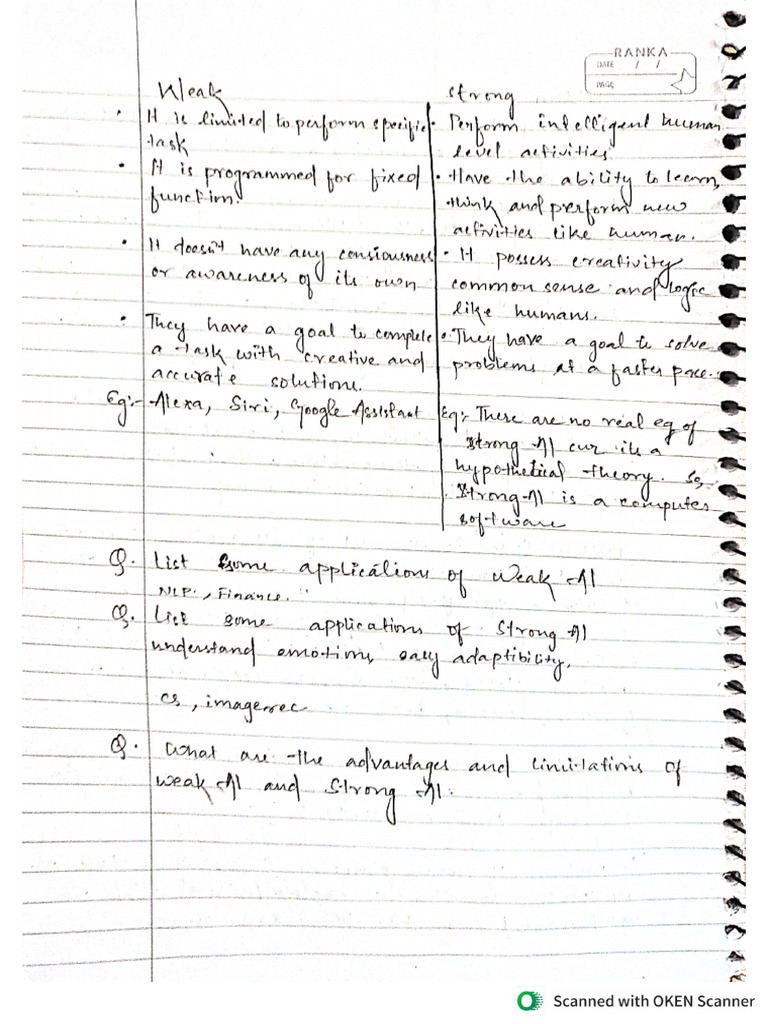 RANKA
DATE / /
PAGE
Weak
It is limited to perform specific
task
It is programmed for fixed
function.
It doesn't have any consiousness
or awareness of its own
They have a goal to complete
a task with creative and
accurate solutions.
Eg:- Alexa, Siri, Google Assistant
Strong
Perform intelligent human
level activities.
Have the ability to learn,
think and perform new
activities like human.
It possess creativity
common sense and logic
like humans.
They have a goal to solve
problems at a faster pace.
Eg:- There are no real eg of
strong AI cur its a
hypothetical theory. So,
strong-AI is a computer
software
Q. List some applications of Weak AI
NLP., Finance.
Q. List some applications of Strong AI
understand emotions, easy adaptibility,
cs, image rec
Q. What are the advantages and limitations of
weak AI and Strong AI.
Scanned with OKEN Scanner